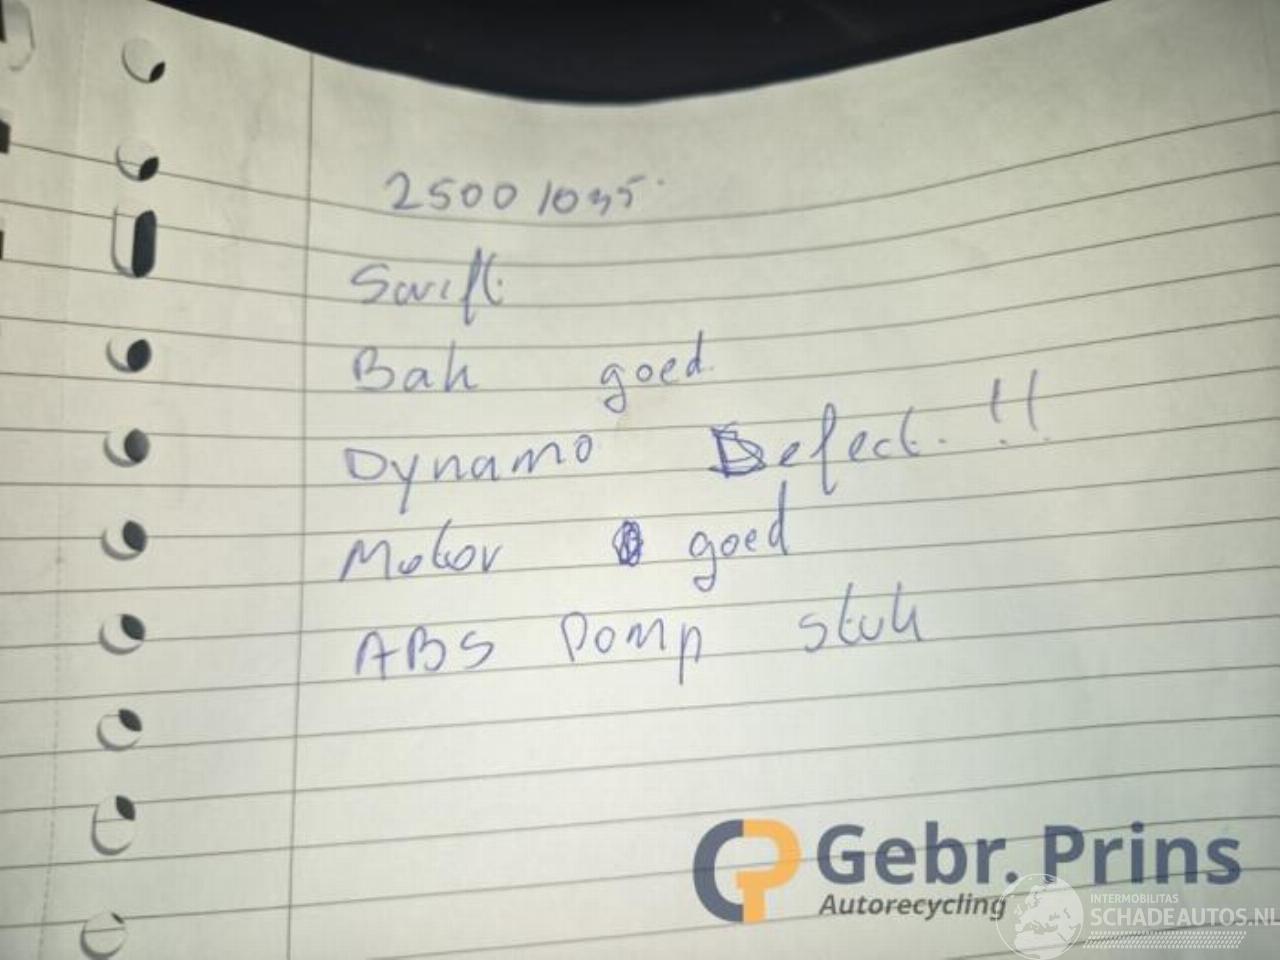 2500 1035.
Swift
Bak goed.
Dynamo Defect. !!
Motor goed
ABS Pomp stuk
Gebr. Prins
Autorecycling
INTERMOBILITAS
SCHADEAUTOS.NL